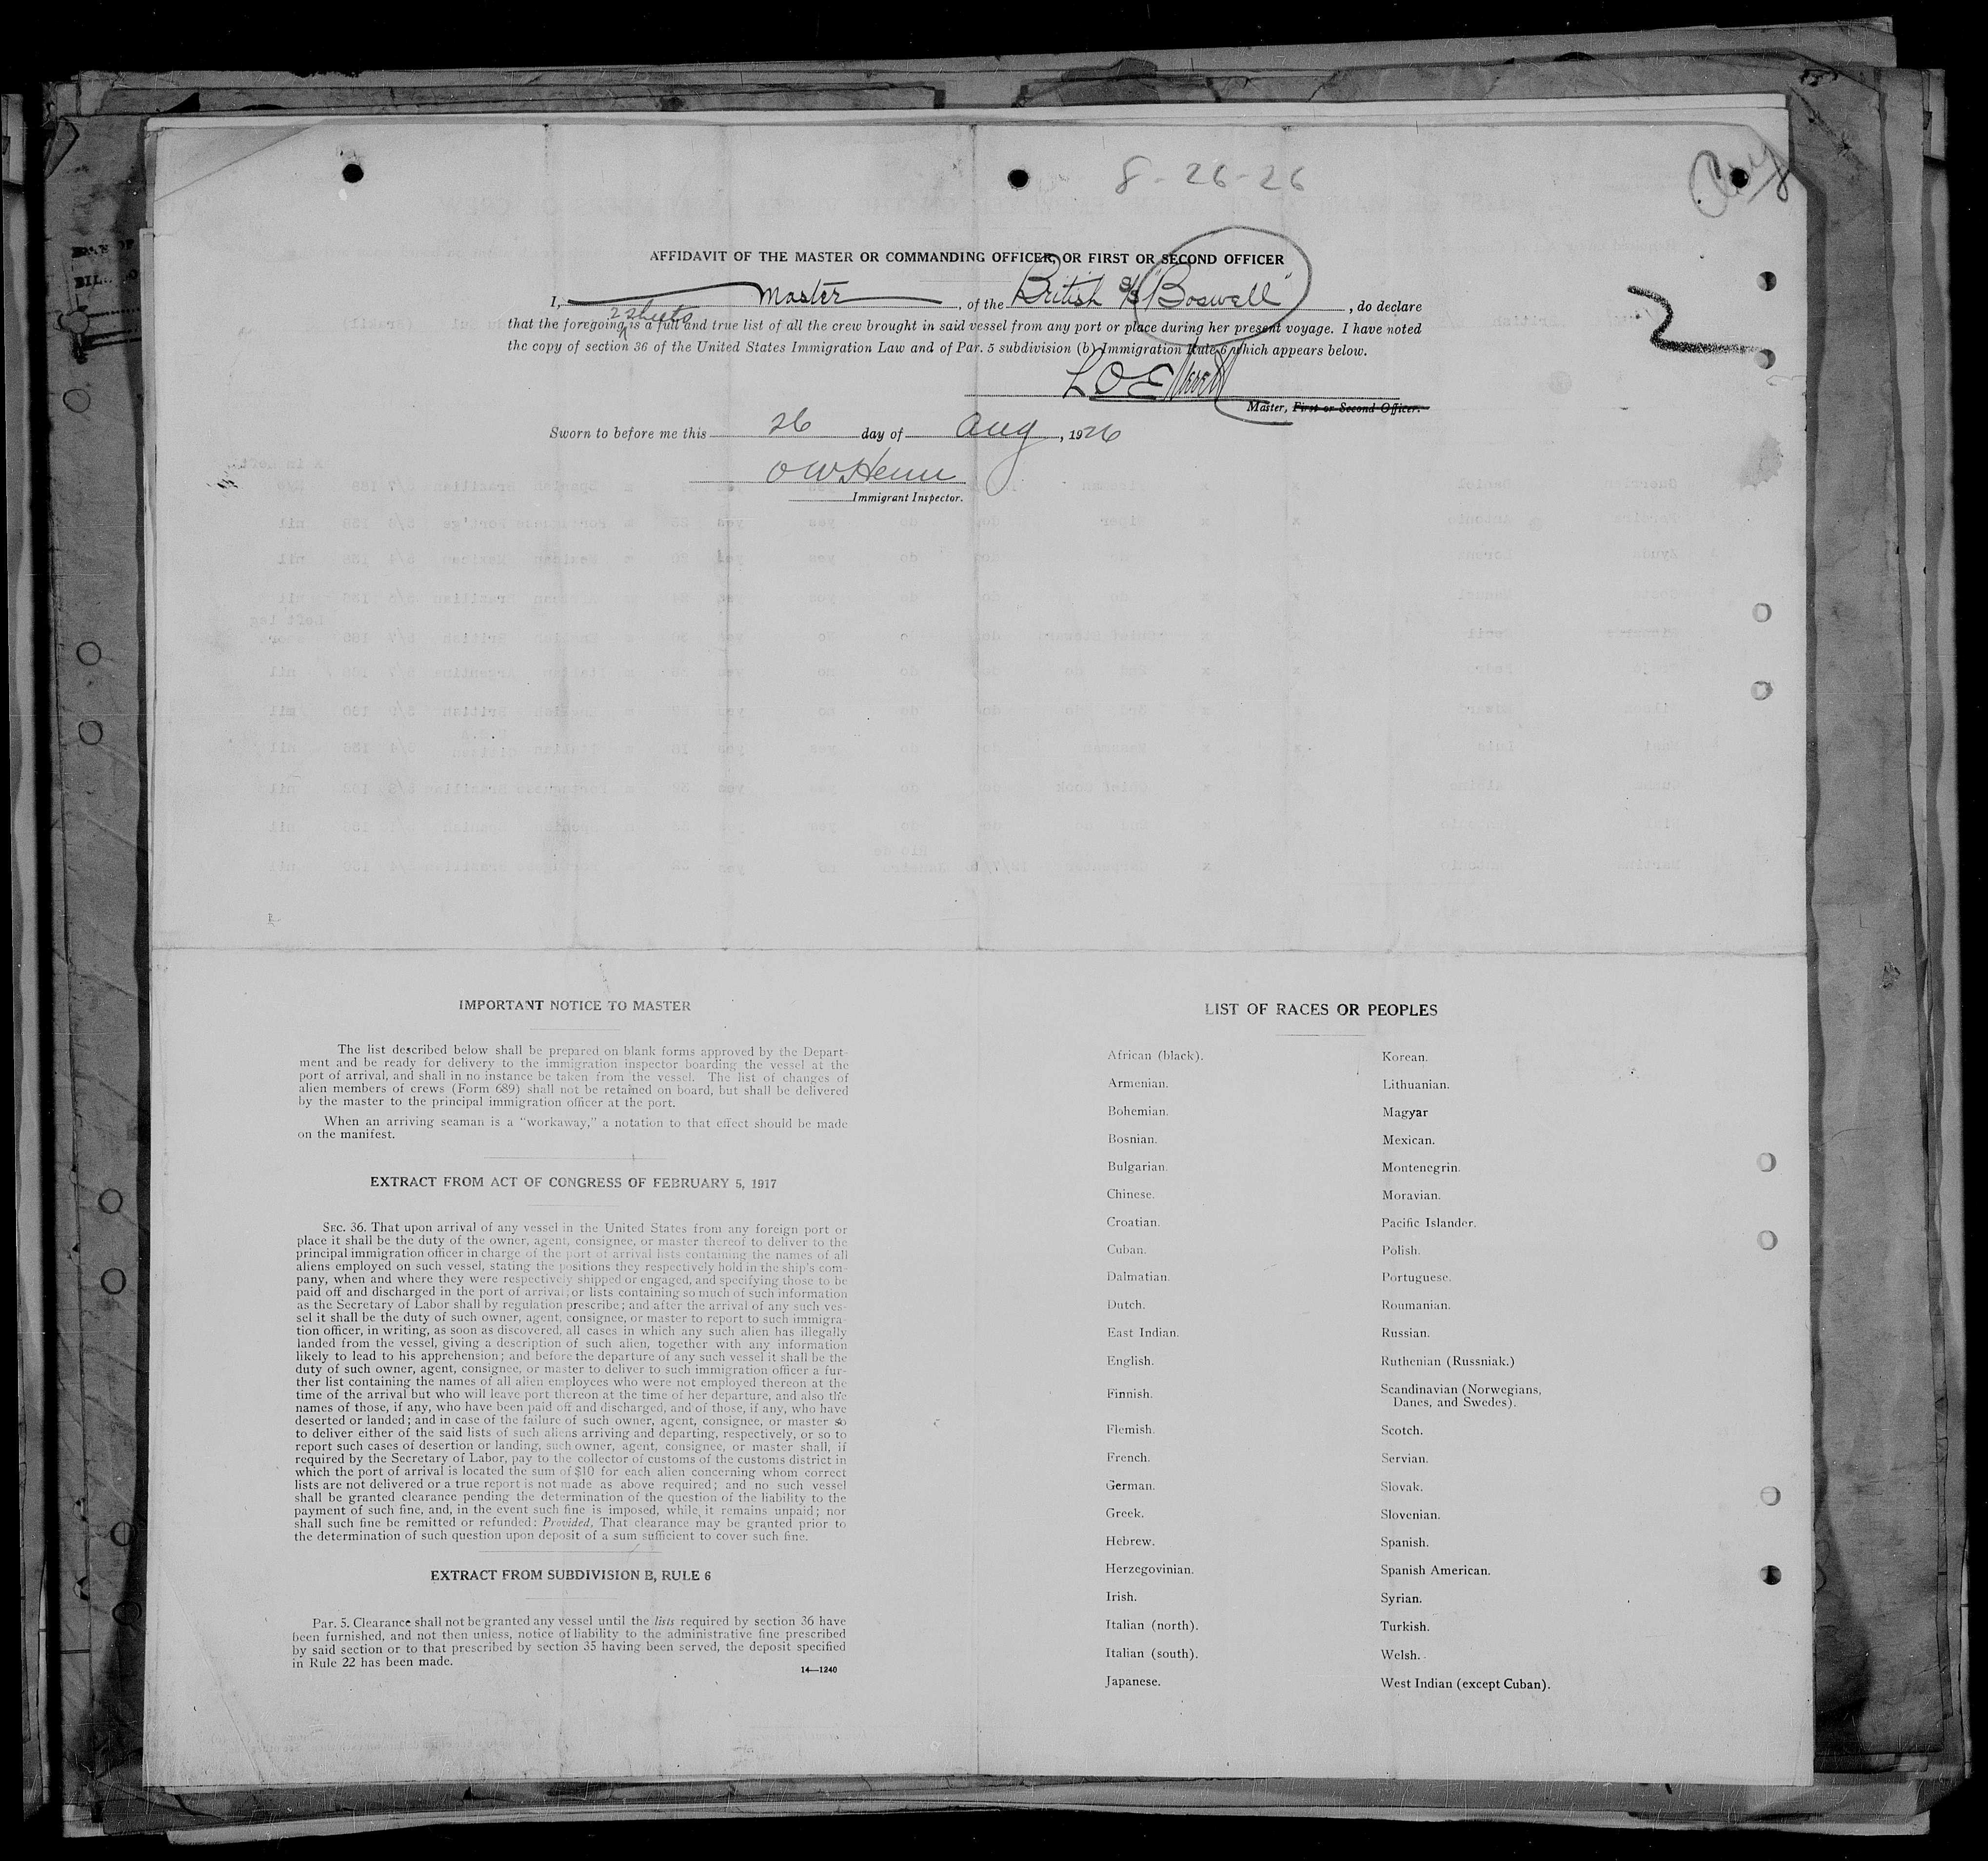 8-26-26
AFFIDAVIT OF THE MASTER OR COMMANDING OFFICER, OR FIRST OR SECOND OFFICER
I, Master, of the British s/s "Boswell", do declare
2 sheets
that the foregoing is a full and true list of all the crew brought in said vessel from any port or place during her present voyage. I have noted
the copy of section 36 of the United States Immigration Law and of Par. 5 subdivision (b) Immigration Rule 6 which appears below.
Master, First or Second Officer.
Sworn to before me this 26 day of Aug, 1926
Immigrant Inspector.
2
IMPORTANT NOTICE TO MASTER
The list described below shall be prepared on blank forms approved by the Depart-
ment and be ready for delivery to the immigration inspector boarding the vessel at the
port of arrival, and shall in no instance be taken from the vessel. The list of changes of
alien members of crews (Form 689) shall not be retained on board, but shall be delivered
by the master to the principal immigration officer at the port.
When an arriving seaman is a "workaway," a notation to that effect should be made
on the manifest.
EXTRACT FROM ACT OF CONGRESS OF FEBRUARY 5, 1917
SEC. 36. That upon arrival of any vessel in the United States from any foreign port or
place it shall be the duty of the owner, agent, consignee, or master thereof to deliver to the
principal immigration officer in charge of the port of arrival lists containing the names of all
aliens employed on such vessel, stating the positions they respectively hold in the ship's com-
pany, when and where they were respectively shipped or engaged, and specifying those to be
paid off and discharged in the port of arrival; or lists containing so much of such information
as the Secretary of Labor shall by regulation prescribe; and after the arrival of any such ves-
sel it shall be the duty of such owner, agent, consignee, or master to report to such immigra-
tion officer, in writing, as soon as discovered, all cases in which any such alien has illegally
landed from the vessel, giving a description of such alien, together with any information
likely to lead to his apprehension; and before the departure of any such vessel it shall be the
duty of such owner, agent, consignee, or master to deliver to such immigration officer a fur-
ther list containing the names of all alien employees who were not employed thereon at the
time of the arrival but who will leave port thereon at the time of her departure, and also the
names of those, if any, who have been paid off and discharged, and of those, if any, who have
deserted or landed; and in case of the failure of such owner, agent, consignee, or master so
to deliver either of the said lists of such aliens arriving and departing, respectively, or so to
report such cases of desertion or landing, such owner, agent, consignee, or master shall, if
required by the Secretary of Labor, pay to the collector of customs of the customs district in
which the port of arrival is located the sum of $10 for each alien concerning whom correct
lists are not delivered or a true report is not made as above required; and no such vessel
shall be granted clearance pending the determination of the question of the liability to the
payment of such fine, and, in the event such fine is imposed, while it remains unpaid; nor
shall such fine be remitted or refunded: Provided, That clearance may be granted prior to
the determination of such question upon deposit of a sum sufficient to cover such fine.
EXTRACT FROM SUBDIVISION B, RULE 6
Par. 5. Clearance shall not be granted any vessel until the lists required by section 36 have
been furnished, and not then unless, notice of liability to the administrative fine prescribed
by said section or to that prescribed by section 35 having been served, the deposit specified
in Rule 22 has been made.
14—1240
LIST OF RACES OR PEOPLES
African (black).
Armenian.
Bohemian.
Bosnian.
Bulgarian.
Chinese.
Croatian.
Cuban.
Dalmatian.
Dutch.
East Indian.
English.
Finnish.
Flemish.
French.
German.
Greek.
Hebrew.
Herzegovinian.
Irish.
Italian (north).
Italian (south).
Japanese.
Korean.
Lithuanian.
Magyar
Mexican.
Montenegrin.
Moravian.
Pacific Islander.
Polish.
Portuguese.
Roumanian.
Russian.
Ruthenian (Russniak.)
Scandinavian (Norwegians,
Danes, and Swedes).
Scotch.
Servian.
Slovak.
Slovenian.
Spanish.
Spanish American.
Syrian.
Turkish.
Welsh.
West Indian (except Cuban).